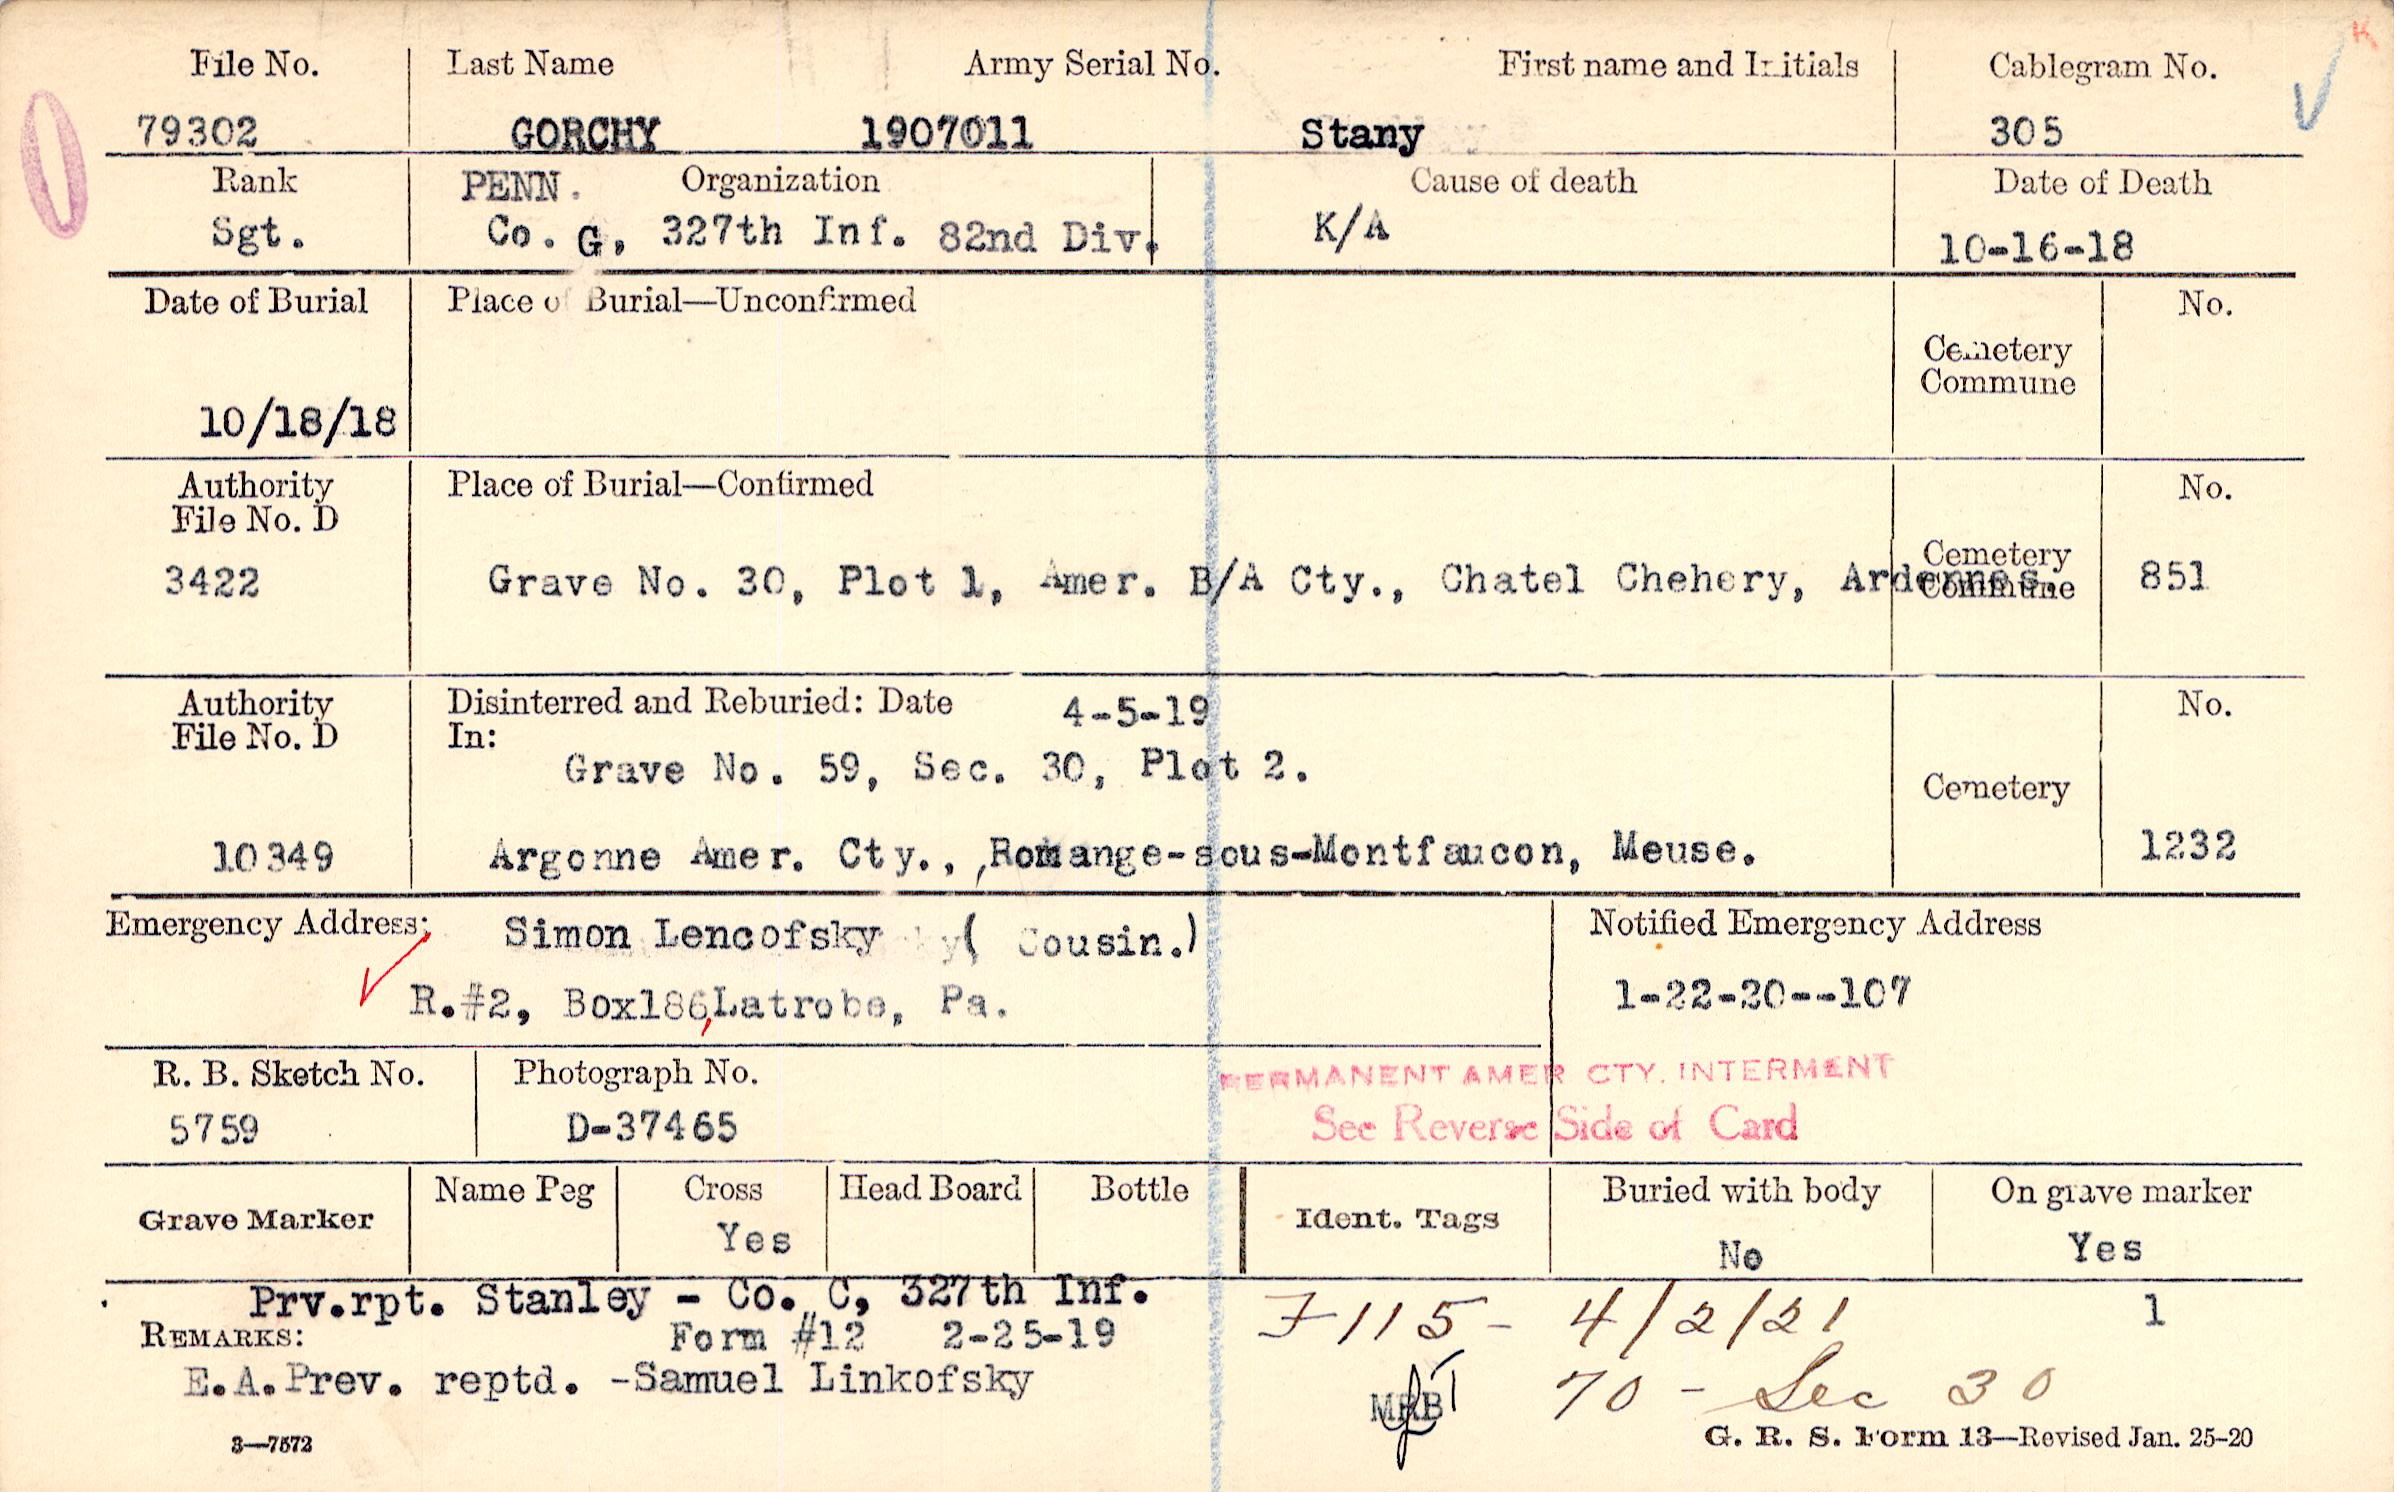 File No. Last Name Army Serial No. First name and Initials Cablegram No.
79302 GORCHY 1907011 Stany 305
Rank PENN. Organization Cause of death Date of Death
Sgt. Co. G, 327th Inf. 82nd Div. K/A 10-16-18
Date of Burial Place of Burial—Unconfirmed No.
Cemetery
Commune
10/18/18
Authority Place of Burial—Confirmed No.
File No. D
Cemetery
Commune
3422 Grave No. 30, Plot 1, Amer. B/A Cty., Chatel Chehery, Ardennes. 851
Authority Disinterred and Reburied: Date 4-5-19 No.
File No. D In:
Grave No. 59, Sec. 30, Plot 2.
Cemetery
10349 Argonne Amer. Cty., Romange-sous-Montfaucon, Meuse. 1232
Emergency Address: Simon Lencofsky ( Cousin.) Notified Emergency Address
R.#2, Box186,Latrobe, Pa. 1-22-20--107
R. B. Sketch No. Photograph No. PERMANENT AMER CTY. INTERMENT
5759 D-37465 See Reverse Side of Card
Grave Marker Name Peg Cross Head Board Bottle Ident. Tags Buried with body On grave marker
Yes No Yes
Prv.rpt. Stanley - Co. C, 327th Inf. F115- 4/2/21 1
REMARKS: Form #12 2-25-19
E.A.Prev. reptd. -Samuel Linkofsky MRB 70 - Sec 30
3—7572 G. R. S. Form 13—Revised Jan. 25-20